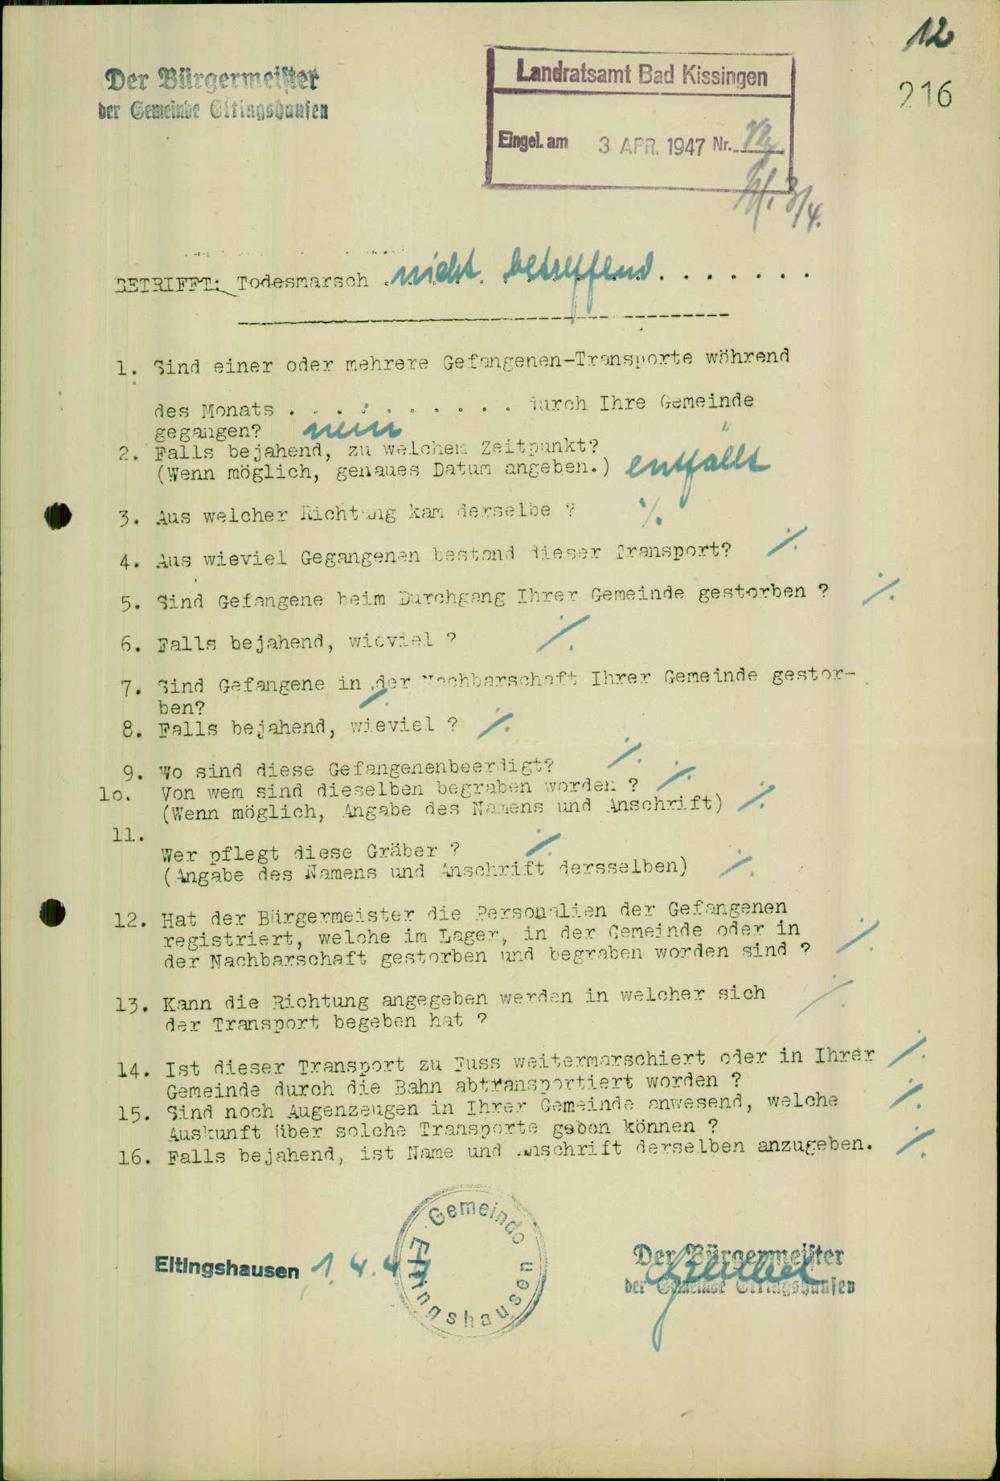 12
216
Der Bürgermeister
der Gemeinde Eltingshausen
Landratsamt Bad Kissingen
Eingel. am 3 APR. 1947 Nr.
3/4.
BETRIFFT: Todesmarsch . nicht betreffend . . . . . . .
1. Sind einer oder mehrere Gefangenen-Transporte während
des Monats . . . . . . . . . . durch Ihre Gemeinde
gegangen? nein
2. Falls bejahend, zu welchem Zeitpunkt?
(Wenn möglich, genaues Datum angeben.) entfällt
3. Aus welcher Richtung kam derselbe ? ·/.
4. Aus wieviel Gegangenen bestand dieser Transport? ·/.
5. Sind Gefangene beim Durchgang Ihrer Gemeinde gestorben ? ·/.
6. Falls bejahend, wieviel ? ·/.
7. Sind Gefangene in der Nachbarschaft Ihrer Gemeinde gestor-
ben? ·/.
8. Falls bejahend, wieviel ? ·/.
9. Wo sind diese Gefangenenbeerdigt? ·/.
1o. Von wem sind dieselben begraben worden ? ·/.
(Wenn möglich, Angabe des Namens und Anschrift) ·/.
11.
Wer pflegt diese Gräber ? ·/.
(Angabe des Namens und Anschrift dersselben) ·/.
12. Hat der Bürgermeister die Personalien der Gefangenen
registriert, welche im Lager, in der Gemeinde oder in
der Nachbarschaft gestorben und begraben worden sind ? ·/.
13. Kann die Richtung angegeben werden in welcher sich
der Transport begeben hat ? ·/.
14. Ist dieser Transport zu Fuss weitermarschiert oder in Ihrer
Gemeinde durch die Bahn abtransportiert worden ? ·/.
15. Sind noch Augenzeugen in Ihrer Gemeinde anwesend, welche
Auskunft über solche Transporte geben können ? ·/.
16. Falls bejahend, ist Name und Anschrift derselben anzugeben. ·/.
Gemeinde Eltingshausen
Eltingshausen 1.4.47
Der Bürgermeister
der Gemeinde Eltingshausen